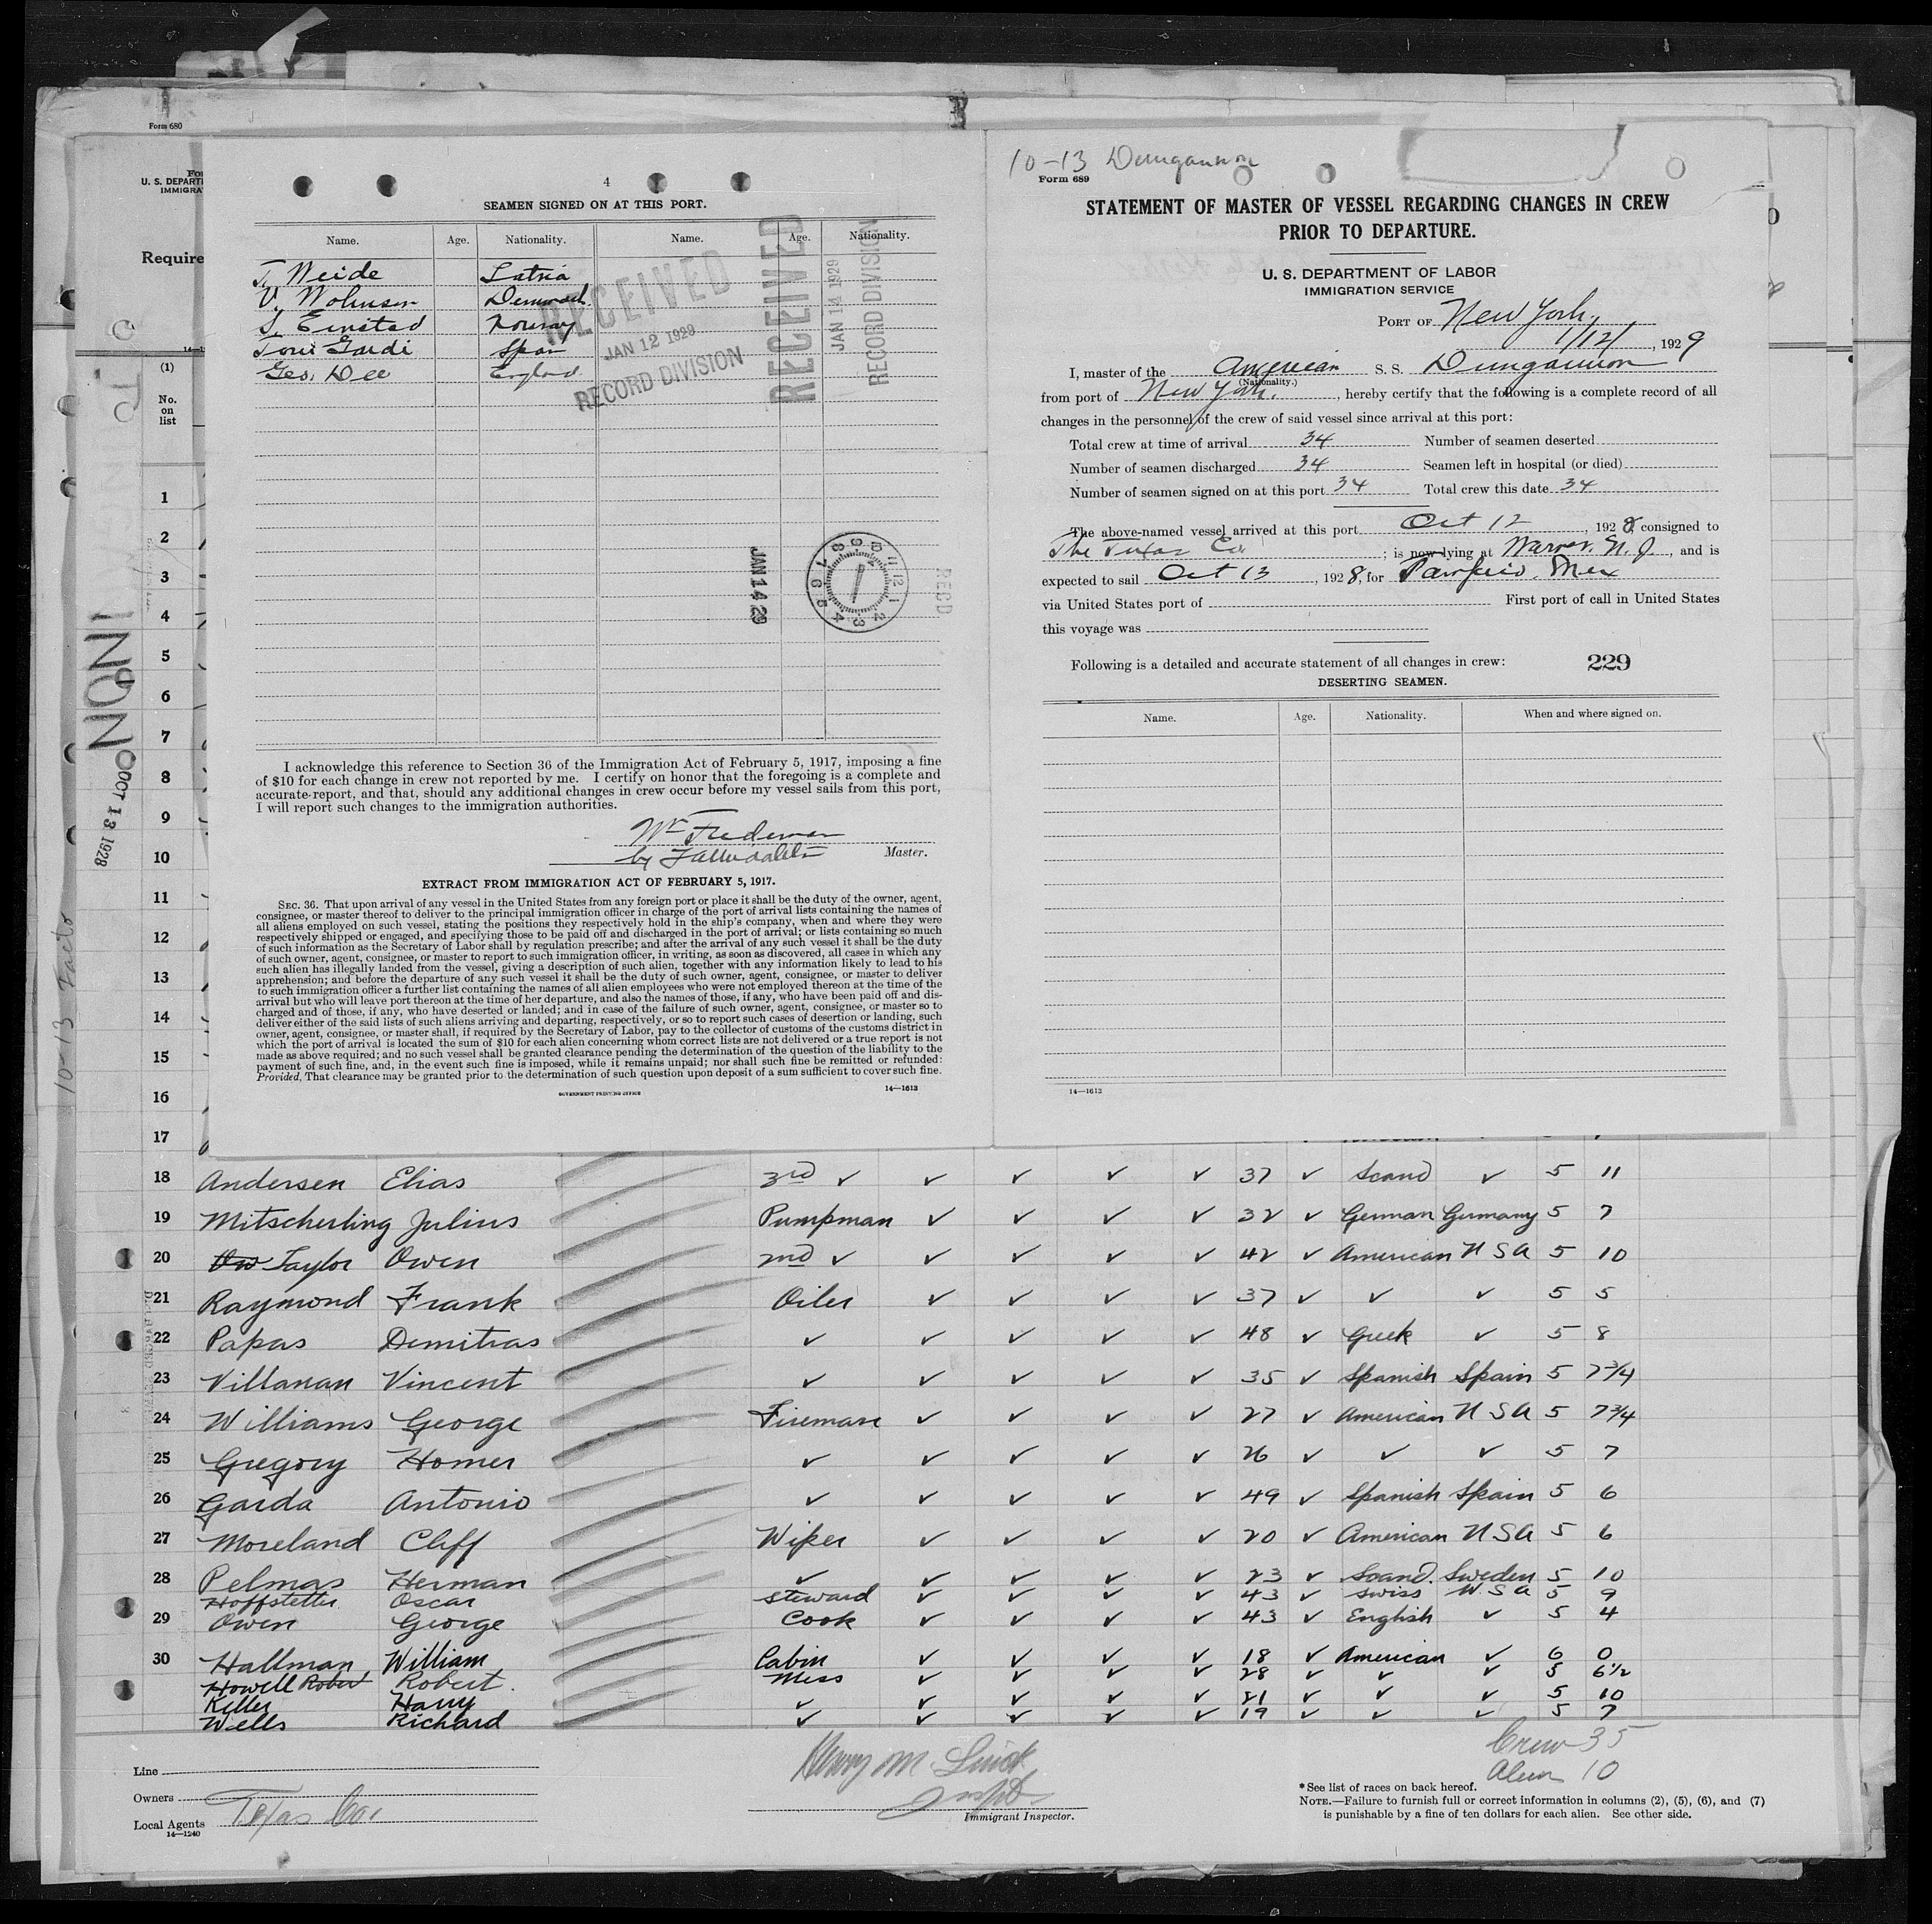 Form 680
U. S. DEPART
IMMIGRA
Require
(1)
No.
on
list
4
SEAMEN SIGNED ON AT THIS PORT.
Name. Age. Nationality. Name. Age. Nationality.
T. Weide Latvia
V. Denmark
Einstad Norway
Gardi Span
Geo. Dee England
RECEIVED
JAN 12 1929
RECORD DIVISION
RECEIVED
JAN 14 1929
RECORD DIVISION
JAN 14 29
REC'D
I acknowledge this reference to Section 36 of the Immigration Act of February 5, 1917, imposing a fine
of $10 for each change in crew not reported by me. I certify on honor that the foregoing is a complete and
accurate report, and that, should any additional changes in crew occur before my vessel sails from this port,
I will report such changes to the immigration authorities.
by
Master.
EXTRACT FROM IMMIGRATION ACT OF FEBRUARY 5, 1917.
SEC. 36. That upon arrival of any vessel in the United States from any foreign port or place it shall be the duty of the owner, agent,
consignee, or master thereof to deliver to the principal immigration officer in charge of the port of arrival lists containing the names of
all aliens employed on such vessel, stating the positions they respectively hold in the ship's company, when and where they were
respectively shipped or engaged, and specifying those to be paid off and discharged in the port of arrival; or lists containing so much
of such information as the Secretary of Labor shall by regulation prescribe; and after the arrival of any such vessel it shall be the duty
of such owner, agent, consignee, or master to report to such immigration officer, in writing, as soon as discovered, all cases in which any
such alien has illegally landed from the vessel, giving a description of such alien, together with any information likely to lead to his
apprehension; and before the departure of any such vessel it shall be the duty of such owner, agent, consignee, or master to deliver
to such immigration officer a further list containing the names of all alien employees who were not employed thereon at the time of the
arrival but who will leave port thereon at the time of her departure, and also the names of those, if any, who have been paid off and dis-
charged and of those, if any, who have deserted or landed; and in case of the failure of such owner, agent, consignee, or master so to
deliver either of the said lists of such aliens arriving and departing, respectively, or so to report such cases of desertion or landing, such
owner, agent, consignee, or master shall, if required by the Secretary of Labor, pay to the collector of customs of the customs district in
which the port of arrival is located the sum of $10 for each alien concerning whom correct lists are not delivered or a true report is not
made as above required; and no such vessel shall be granted clearance pending the determination of the question of the liability to the
payment of such fine, and, in the event such fine is imposed, while it remains unpaid; nor shall such fine be remitted or refunded:
Provided, That clearance may be granted prior to the determination of such question upon deposit of a sum sufficient to cover such fine.
14—1613
GOVERNMENT PRINTING OFFICE
10-13 Dungannon
Form 689
STATEMENT OF MASTER OF VESSEL REGARDING CHANGES IN CREW
PRIOR TO DEPARTURE.
U. S. DEPARTMENT OF LABOR
IMMIGRATION SERVICE
PORT OF New York,
1/12/, 1929
I, master of the American S. S. Dungannon
(Nationality.)
from port of New York., hereby certify that the following is a complete record of all
changes in the personnel of the crew of said vessel since arrival at this port:
Total crew at time of arrival 34 Number of seamen deserted
Number of seamen discharged 34 Seamen left in hospital (or died)
Number of seamen signed on at this port 34 Total crew this date 34
The above-named vessel arrived at this port Oct 12, 1928, consigned to
The Texas Co.; is now lying at Warner. N. J., and is
expected to sail Oct 13, 1928, for Tampico. Mex
via United States port of First port of call in United States
this voyage was
Following is a detailed and accurate statement of all changes in crew: 229
DESERTING SEAMEN.
Name. Age. Nationality. When and where signed on.
14—1613
OCT 13 1928
1
2
3
4
5
6
7
8
9
10
11
12
13
14
15
16
17
18 Andersen Elias 3rd ✓ ✓ ✓ ✓ ✓ 37 ✓ Scand ✓ 5 11
19 Mitscherling Julius Pumpman ✓ ✓ ✓ ✓ 32 ✓ German Germany 5 7
20 Taylor Owen 2nd ✓ ✓ ✓ ✓ ✓ 42 ✓ American U S A 5 10
21 Raymond Frank Oiler ✓ ✓ ✓ ✓ 37 ✓ ✓ ✓ 5 5
22 Papas Demitras ✓ ✓ ✓ ✓ ✓ 48 ✓ Greek ✓ 5 8
23 Villanan Vincent ✓ ✓ ✓ ✓ ✓ 35 ✓ Spanish Spain 5 7 3/4
24 Williams George Fireman ✓ ✓ ✓ ✓ 27 ✓ American U S A 5 7 3/4
25 Gregory Homer ✓ ✓ ✓ ✓ ✓ 26 ✓ ✓ ✓ 5 7
26 Garda Antonio ✓ ✓ ✓ ✓ ✓ 49 ✓ Spanish Spain 5 6
27 Moreland Cliff Wiper ✓ ✓ ✓ ✓ 20 ✓ American U S A 5 6
28 Pelmas Herman ✓ ✓ ✓ ✓ ✓ 23 ✓ Scand. Sweden 5 10
Hoffstetter Oscar Steward ✓ ✓ ✓ ✓ 43 ✓ Swiss U. S A 5 9
29 Owen George Cook ✓ ✓ ✓ ✓ 43 ✓ English ✓ 5 4
30 Hallman, William Cabin ✓ ✓ ✓ ✓ 18 ✓ American ✓ 6 0
Howell Robert Robert. Mess ✓ ✓ ✓ ✓ 28 ✓ ✓ ✓ 5 6 1/2
Keller Harry ✓ ✓ ✓ ✓ ✓ 21 ✓ ✓ ✓ 5 10
Wells Richard ✓ ✓ ✓ ✓ ✓ 19 ✓ ✓ ✓ 5 7
Crew 35
Alien 10
Line
Owners
Local Agents Texas Co.
14—1240
Henry M.
Immigrant Inspector.
* See list of races on back hereof.
NOTE.—Failure to furnish full or correct information in columns (2), (5), (6), and (7)
is punishable by a fine of ten dollars for each alien. See other side.